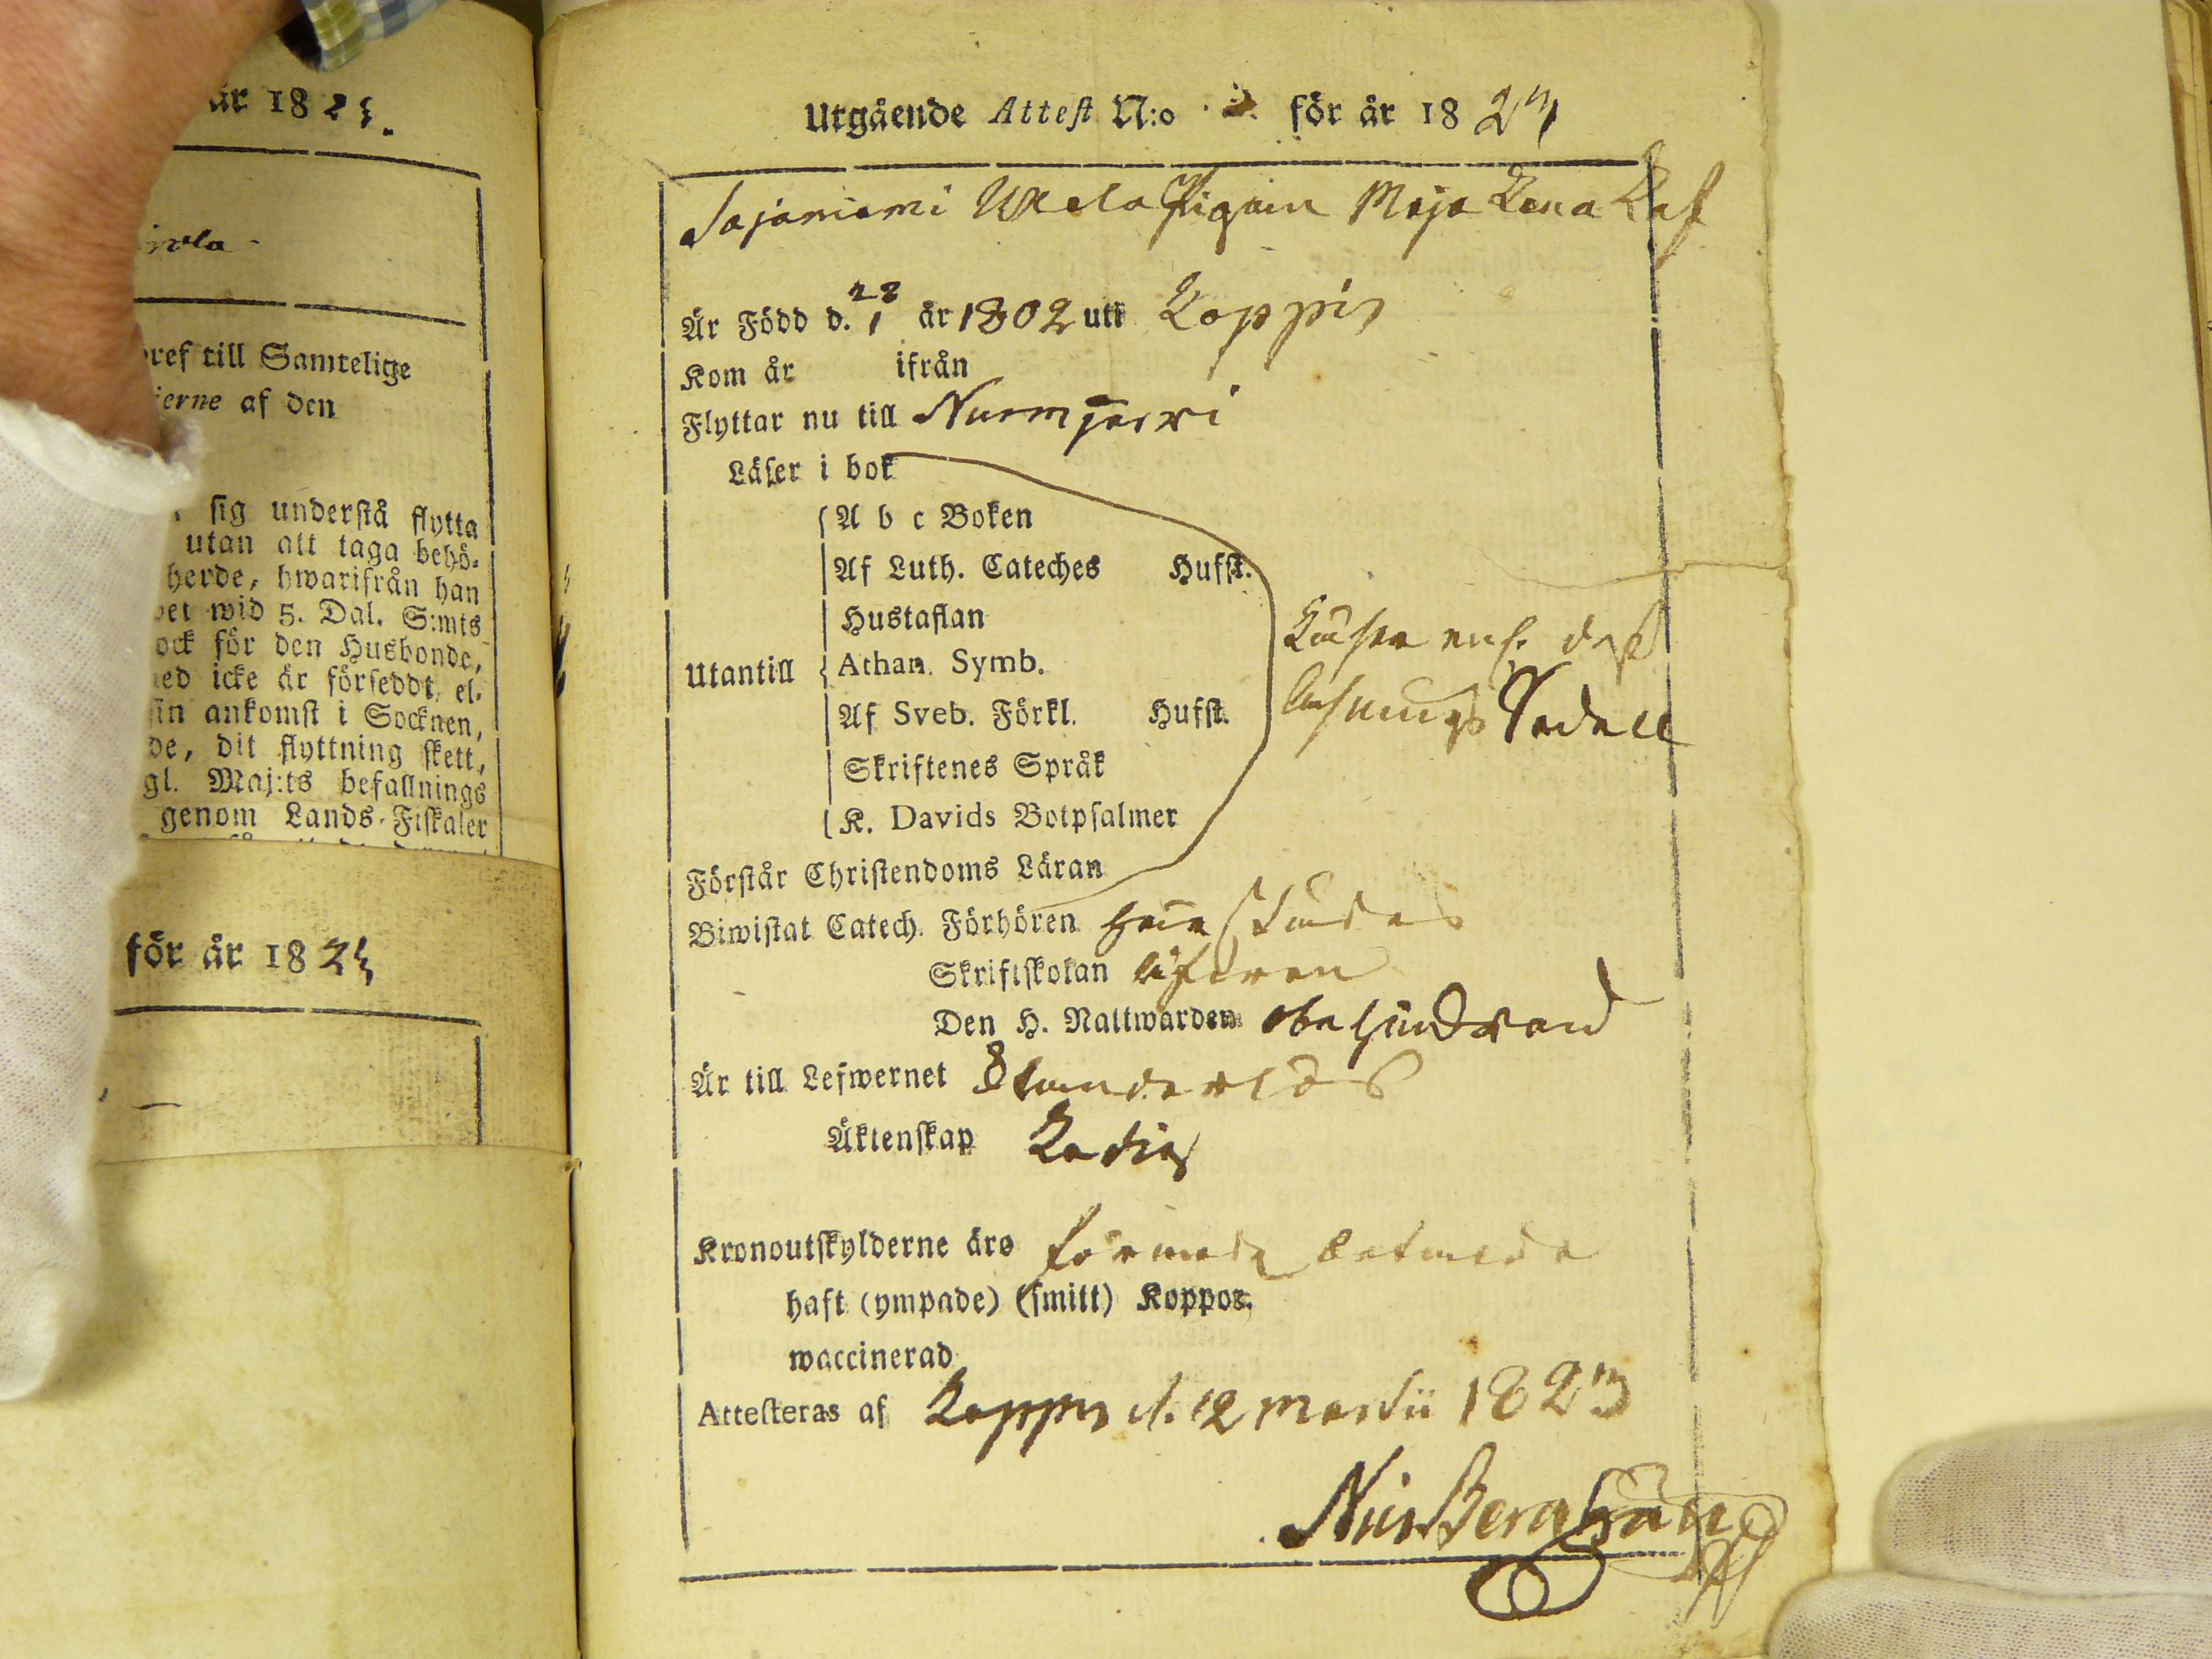 år 1823.
ref till Samtelige
erne af den
sig understå flytta
utan att taga behö-
herde, hwarifrån han
wid 5. Dal. S:mts
ock för den Husbonde,
icke är förseddt, el-
ankomst i Socknen,
de, dit flyttning skett,
gl. Maj:ts befallnings
genom Lands-Fiskaler
för år 1823
Utgående Attest N:o för år 1823
Sajaniemi Pigan Maja Lena
Är Född d. 28/1 år 1802 uti Loppis
Kom år ifrån
Flyttar nu till Nurmijerwi
Läser i bok
A b c Boken
Af Luth. Cateches Hufst.
Hustaflan
Utantill Athan. Symb.
Af Sveb. Förkl. Hufst.
Skriftenes Språk
K. Davids Botpsalmer
dess
läsnings Sedell
Förstår Christendoms Läran
Biwistat Catech. Förhören
Skriftskolan
Den H. Nattwarden obehindrad
Är till Lefwernet
Äktenskap Ledig
Kronoutskylderne äro
haft (ympade) (smitt) Koppor.
waccinerad
Attesteras af Loppis d. 12 Martii 1823